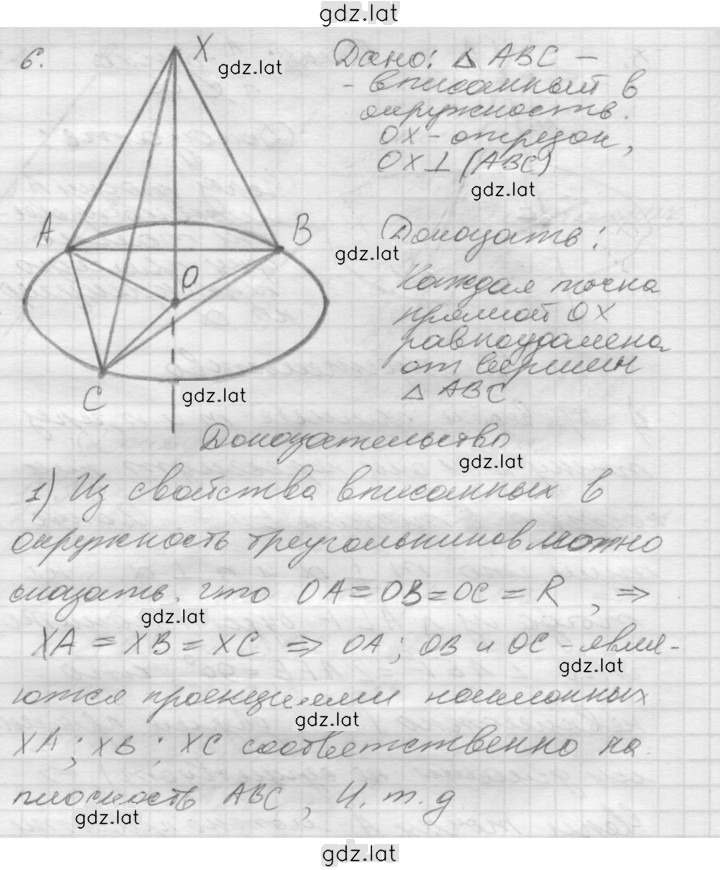 gdz.lat
6.
X
gdz.lat
Дано: △ ABC –
- вписанный в
окружность.
OX - отрезок,
OX ⊥ (ABC)
gdz.lat
A
B
O
C
gdz.lat
gdz.lat
Доказать:
Каждая точка
прямой OX
равноудалена
от вершин
△ ABC
Доказательство
gdz.lat
1) Из свойства вписанных в
окружность треугольников можно
сказать, что OA = OB = OC = R, ⇒
gdz.lat
XA = XB = XC ⇒ OA; OB и OC - явля-
gdz.lat
ются проекциями наклонных
gdz.lat
XA; XB; XC соответственно на
плоскость ABC, Ч.т.д
gdz.lat
gdz.lat